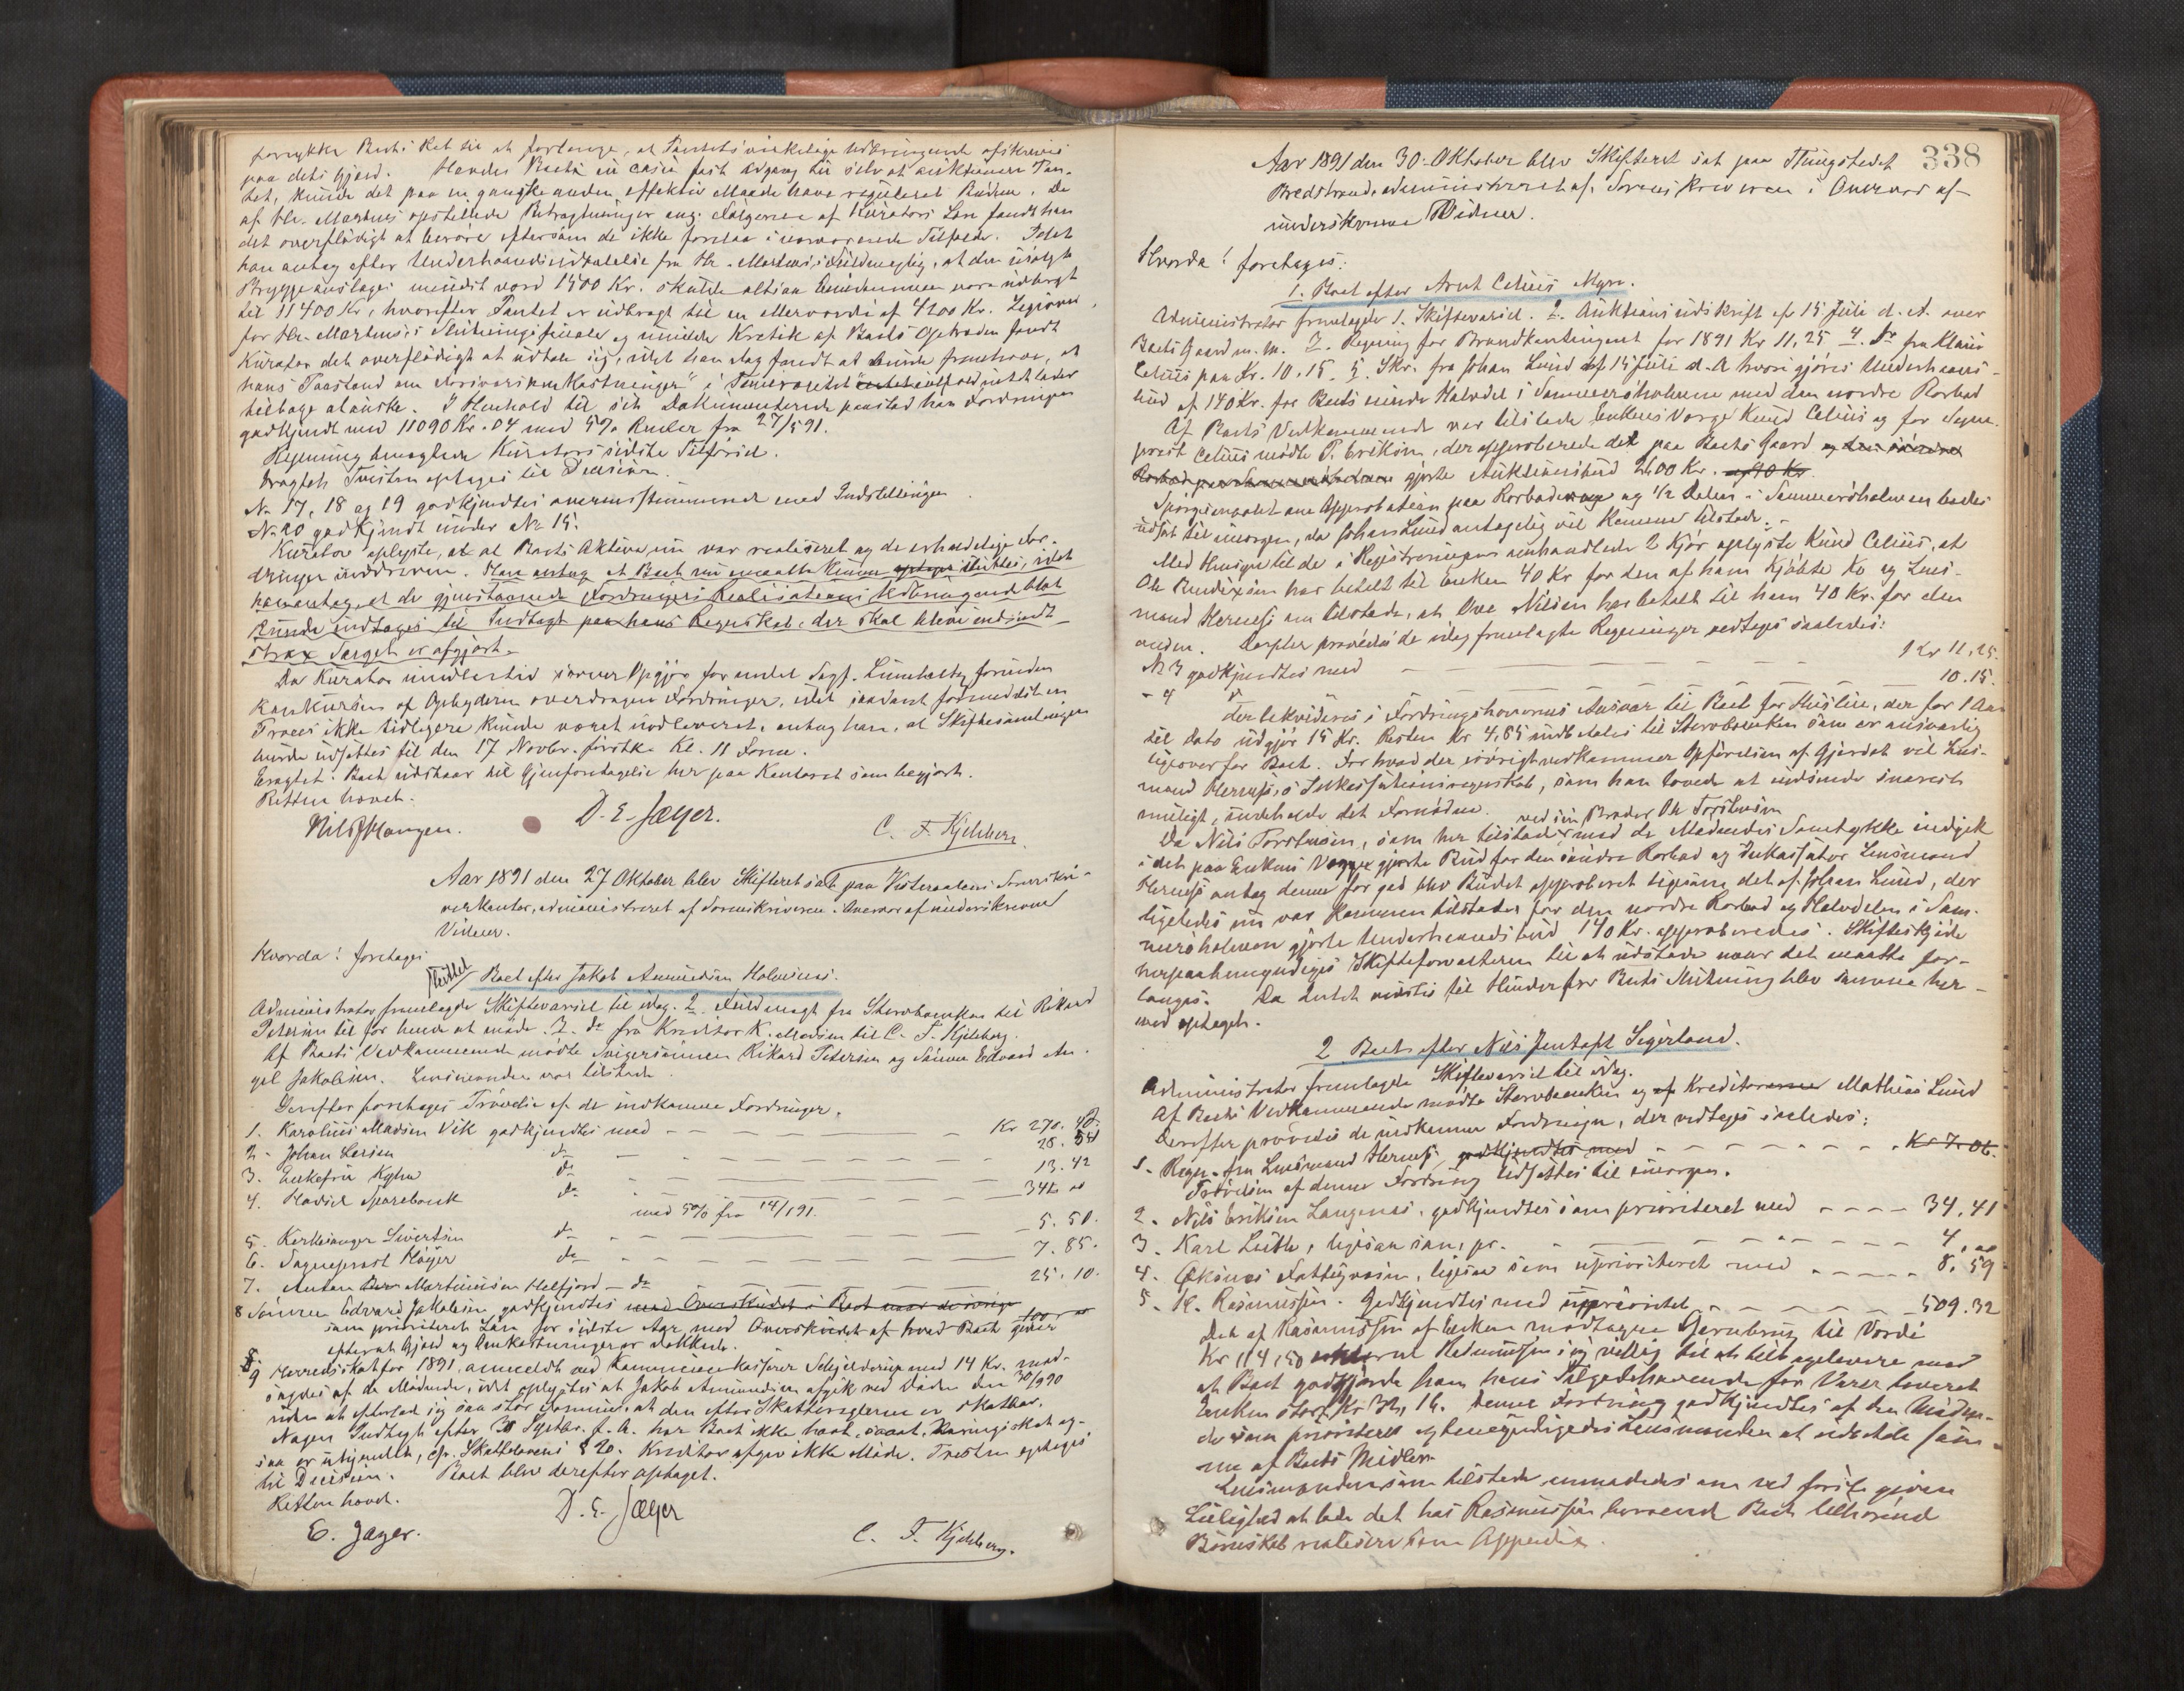 forrykke Boets Ret til at forlange, at Pantets virkelige Udbringende afskrives
paa dets Gjæld. Havdes Boets in casu fast Adgang til selv at auktionere Pan-
tet, kunde det paa en ganske anden effektiv Maade have reguleret Budene. De
af Hr. Martens opstillede Betragtninger ang. Følgerne af Kurators Lære fandt han
det overflødigt at berøre eftersom de ikke forelaa i nærværende Tilfælde. Idet
han antog efter Underhaandsudtalelse fra Hr. Martens's Fuldmægtig, at den
Bryggeanslaget mindst værd 1500 Kr. skulde altsaa Eiendommen være udbragt
til 11400 Kr, hvorefter Pantet er udbragt til en Merværdi af 4200 Kr.
for Hr. Martens's Slutningsfinale og milde Kritik af Boets Optræden fandt
Kurator det overflødigt at udtale sig, idet han dog fandt at burde fremhæve, at
hans Paastand om Forsvarsomkostninger i
tilbage at ønske. I Henhold til sit Dokumenterede paastod han Fordringen
godkjendt med 11090 Kr. 04 med 5% Renter fra 27/5 91.
Regning benægtede Kurators sidste Tilførsel.
Eragtet: Tvisten optages til Decision.
No 17, 18 og 19 godkjendtes overensstemmende med Indstillingen.
No 20 godkjendt under No 15.
Kurator oplyste, at al Boets Aktiva nu var realiseret og de erholdelige For-
dringer inddrevne. Han antog at Boet nu maatte kunne optages sluttes, idet
han antog, at de gjenstaaende Fordringers Realisations Udbringende blot
kunde indtages til Indtægt paa hans Regnskab, der skal blive indsendt
strax Salget er afgjort.
Da Kurator imidlertid savner Opgjør for endel Sagf. Lumholtz forinden
Konkursen af Opbyderen overdragne Fordringer, idet saadant formedelst en
Proces ikke tidligere kunde været indleveret, antog han, at Skiftesamlingen
burde udsættes til den 17 Novbr. førstk. Kl. 11 Form.
Eragtet: Boet udstaar til Gjenforetagelse her paa Kontoret som begjært.
Retten hævet.
D. E. Jæger.
C. F. Kjelsberg
Aar 1891 den 27 Oktober blev Skifteret sat paa Vesteraalens Sorenskri-
verkontor, administreret af Sorenskriveren i Overvær af underskrevne
Vidner.
Hvorda! foretages
Sluttet
Boet efter Jakob Amundsen Holmsnes.
Administrator fremlagde Skiftevarsel til idag. 2. Fuldmagt fra Stervboenken til Rikard
Petersen til for hende at møde. 3. do fra Kreditor K. Madsen til C. F. Kjelsberg.
Af Boets Vedkommende mødte Svigersønnen Rikard Petersen og Sønnen Edvard An-
gel Jakobsen. Lensmanden var tilstede.
Derefter foretages Prøvelse af de indkomne Fordringer.
1. Karolius Madsen Vik godkjendtes med — — — Kr 270. 40.
2. Johan Larsen do — — — 28. 54
3. Enkefru Kylvø do — — — 13. 42
4. Hadsel Sparebank do — — — 34
med 5% fra 14/1 91.
5. Kirkesanger Sivertsen do — — — 5. 50.
6. Sogneprest Høyer do — — — 7. 85.
7. Anton Martinussen Melfjord — do — — — 25. 10.
8 Sønnen Edvard Jakobsen godkjendtes med Overskudet i Boet naar de øvrige
som prioriteret Løn for sidste Aar med Overskudet af hvad Boet giver 100
efterat Gjæld og Omkostninger er dækkede.
9 Herredsskat for 1891, anmeldt ved Kommunekasserer Schjelderup med 14 Kr. mod-
sagdes af de Mødende, idet oplystes at Jakob Amundsen afgik ved Døden den 30/9 90
uden at efterlade sig saa stor Formue, at den efter Skattereglerne er skatbar.
Nogen Indtægt efter 30 Septbr. f. A. har Boet ikke havt, saaat Næringsskat og-
saa er uhjemlet, cfr. Skattelovens § 20. Kreditor afgav ikke Møde. Tvisten optages
til Decision. Boet blev derefter optaget.
Retten hævet.
E. Jæger.
D. E. Jæger
C. F. Kjelsberg.
338
Aar 1891 den 30. Oktober blev Skifteret sat paa Thingstedet
Bredstrand, administreret af Sorenskriveren i Overvær af
underskrevne Vidner.
Hvorda! foretages:
1. Boet efter Arnt Celius Myre.
Administrator fremlagde 1. Skiftevarsel. 2. Auktionsudskrift af 15 Juli d. A. over
Boets Gaard m. m. 3. Regning for Brandkontingent for 1891 Kr 11,25 4. do fra Klaus
Celius paa Kr. 10.15. 5. Skr. fra Johan Lund af 15 Juli d. A hvori gjøres Underhaands-
bud af 140 Kr. for Boets mindre Halvdel i Sommerøholmene med den nordre Rorbod
Af Boets Vedkommende var tilstede Enkens Værge Knud Celius og for Sogne-
prest Celius mødte P. Eriksen, der approberede det paa Boets Gaard og den søndre
Rorbod paa Sommerøholmen gjorte Auktionsbud 2600 Kr. og 40 Kr.
Spørgsmaalet om Approbation paa Rorboderne og 1/2 Delen i Sommerøholmen bedes
udsat til imorgen, da Johan Lund antagelig vil komme tilstede.
Med Hensyn til de i Registreringen omhandlede 2 Kjør oplyste Knud Celius, at
Ole Bendixsen har betalt til Enken 40 Kr for den af ham kjøbte Ko og Lens-
mand Hernæs om tilstede, at Ove Nilsen har betalt til ham 40 Kr. for den
anden. Derefter prøvedes de idag fremlagte Regninger vedtages saaledes:
No 3 godkjendtes med — — — Kr 11,25.
- 4 do — — — 10.15.
der likvideres i Fordringshaverens Ansvar til Boet for Husleie, der for 1 Aar
til dato udgjør 15 Kr. Resten Kr 4,85 indbetales til Stervboenken som er ansvarlig
ligeoverfor Boet. For hvad der iøvrigt vedkommer Opførelsen af Gjerdet vil Lens-
mand Hernæs's Inkassationsregnskab, som han lovede at indsende snarest
muligt, indeholde det Fornødne.
ved sin Broder Ole Torstensen
Da Nils Torstensen, som her tilstede med de Mødendes Samtykke indgik
i det paa Enkens Vegne gjorte Bud for den søndre Rorbod og Inkassator Lensmand
Hernæs antog denne for god blev Budet approberet ligesom det af Johan Lund, der
ligeledes nu var kommen tilstede for den nordre Rorbod og Halvdelen i Som-
merøholmen gjorte Underhaandsbud 140 Kr. approberedes. Skifteskjøde
herpaa bemyndiges Skifteforvalteren til at udstede naar det maatte for-
langes. Da Intet vidstes til Hinder for Boets Slutning blev samme her-
med optaget.
2 Boet efter Nils Jentoft Sigerland.
Administrator fremlagde Skiftevarsel til idag.
Af Boets Vedkommende mødte Stervboenken og af Kreditorerne Mathias Lund
Derefter prøvedes de indkomne Fordringer, der vedtages saaledes:
1. Regn. fra Lensmand Hernæs, godkjendtes med — — — Kr 7.06.
Prøvelsen af denne Fordring udsættes til imorgen.
2. Nils Eriksen Langenes, godkjendtes som prioriteret med — — — 34,41
3. Karl Lubbe, ligesaa som pr. — — — 4,
4. Øksnes Fattigvæsen, ligesaa som uprioriteret med — — — 8.59
5. K. Rasmussen. Godkjendtes med uprioritet — — — 509.32
Det af Rasmussen af Enken modtagne Garnbrug til Værdi
Kr 114,50 erklærede Rasmussen sig villig til at tilbagelevere mod
at Boet godgjorde ham hans Tilgodehavende for Varer leveret
Enken stort Kr 32,16. Denne Fordring godkjendtes af de Møden-
de som prioriteret og bemyndigedes Lensmanden at udbetale sam-
me af Boets Midler.
Lensmanden som tilstede anmodedes om ved første givne
Leilighed at lade det hos Rasmussen beroende Boet tilhørende
Børneskab realisere som Appendix.